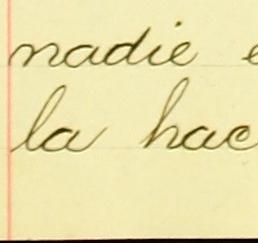 nadie
la hac